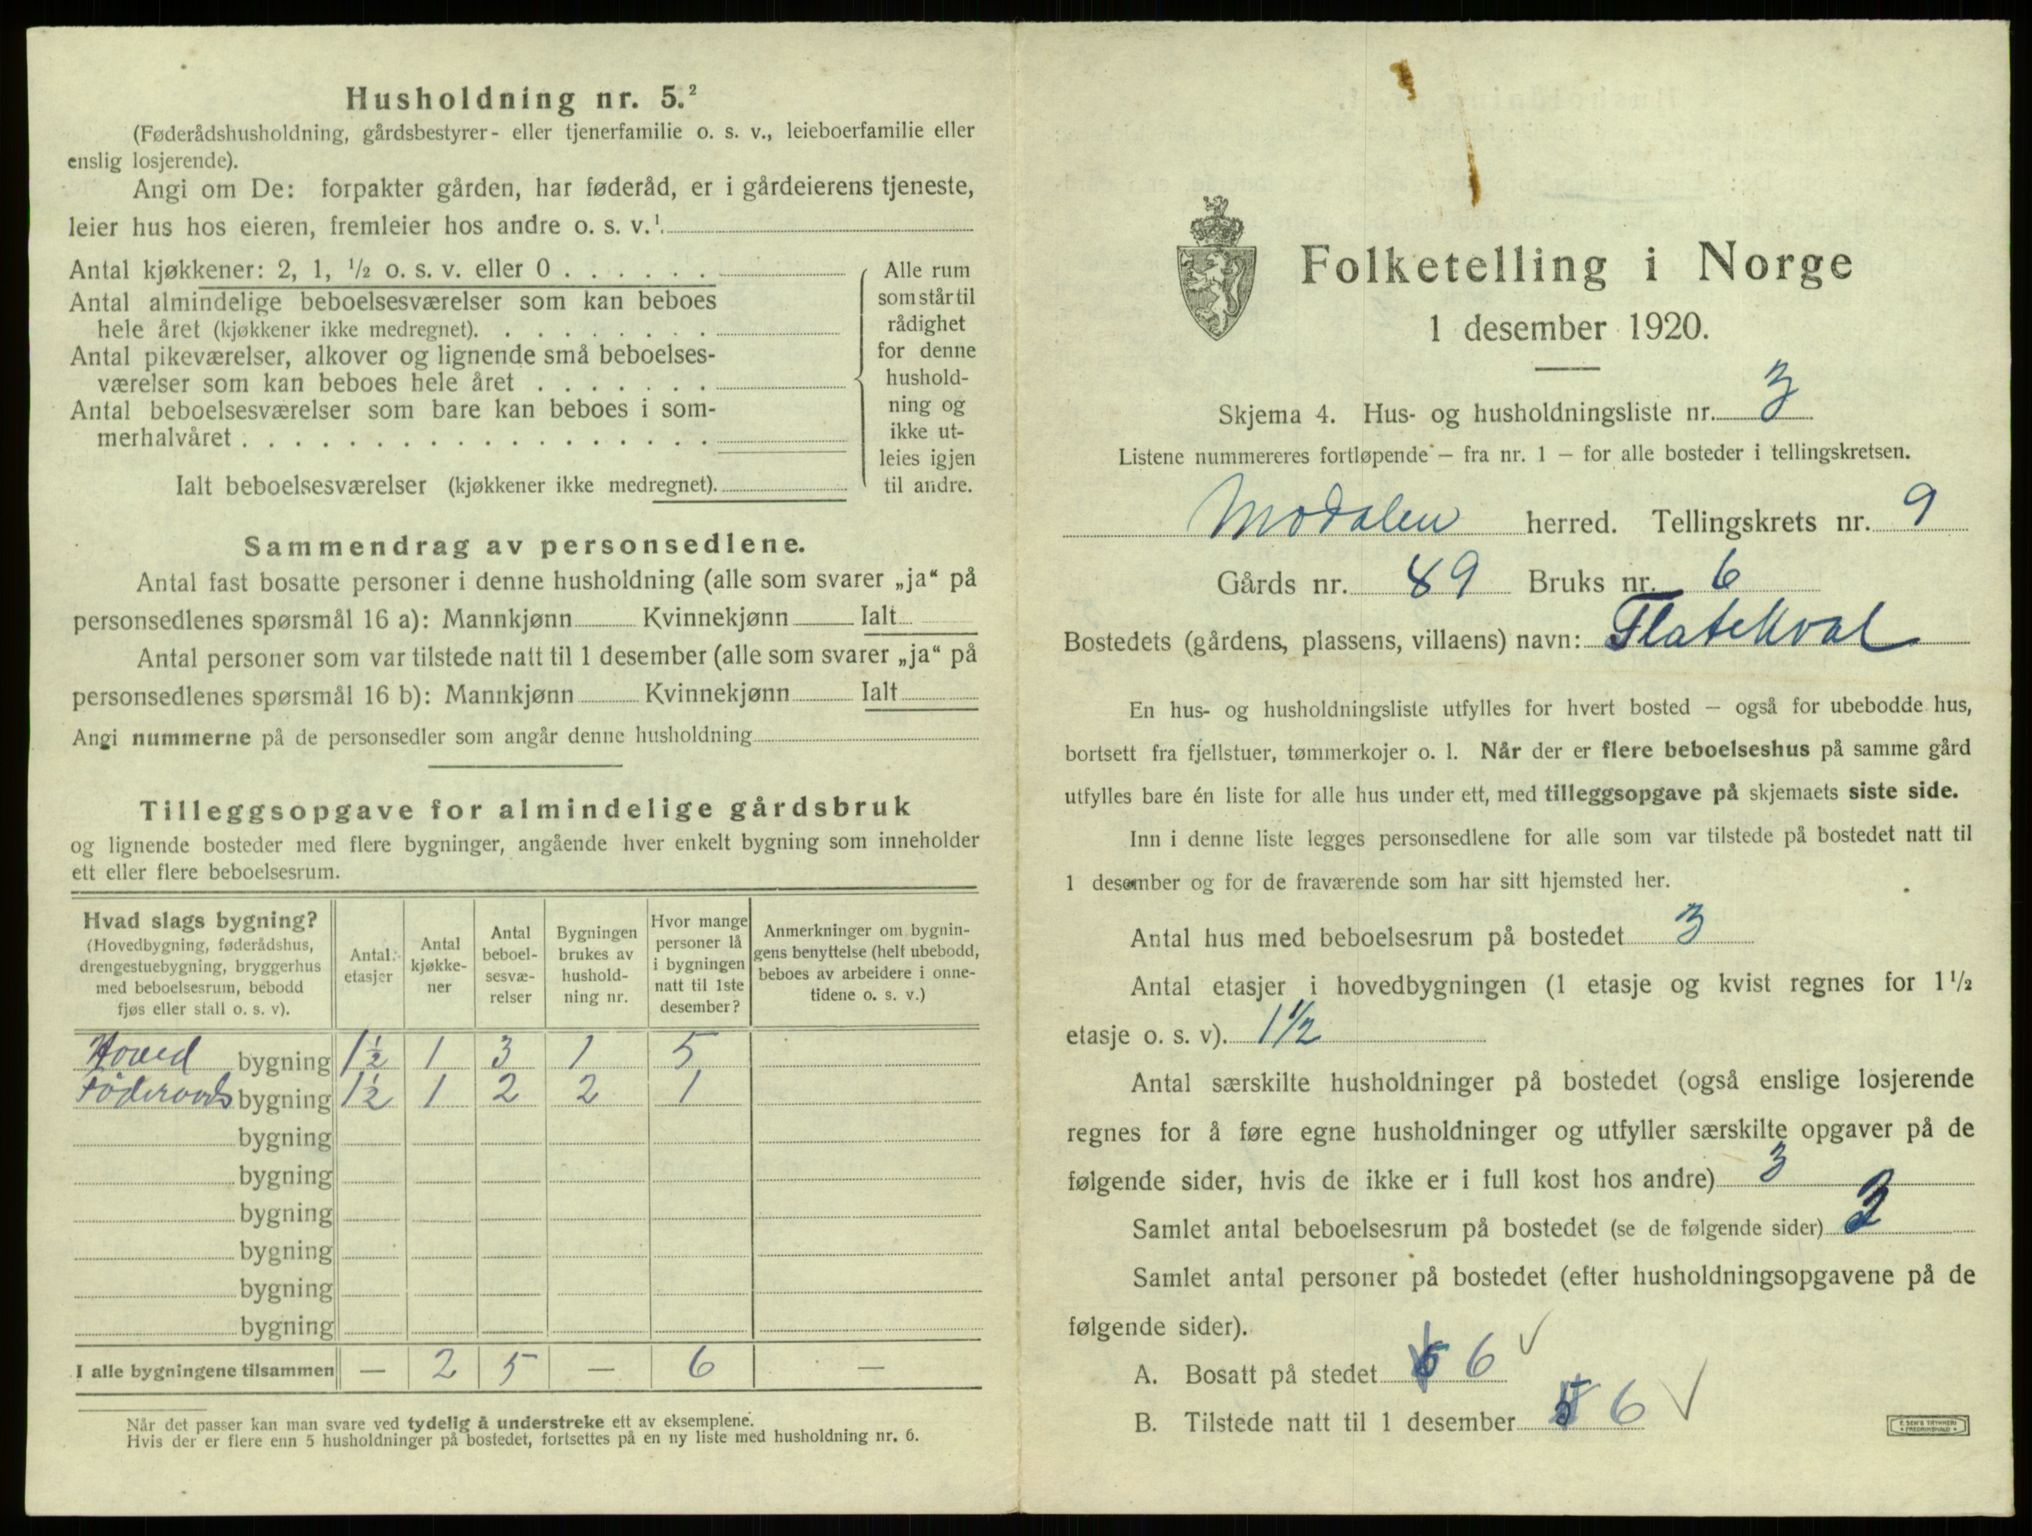 Husholdning nr. 5.²
(Føderådshusholdning, gårdsbestyrer- eller tjenerfamilie o. s. v., leieboerfamilie eller
enslig losjerende).
Angi om De: forpakter gården, har føderåd, er i gårdeierens tjeneste,
leier hus hos eieren, fremleier hos andre o. s. v.¹
Antal kjøkkener: 2, 1, ½ o. s. v. eller 0 . . . . . .
Antal almindelige beboelsesværelser som kan beboes
hele året (kjøkkener ikke medregnet). . . . . . . . .
Antal pikeværelser, alkover og lignende små beboelses-
værelser som kan beboes hele året . . . . . . .
Antal beboelsesværelser som bare kan beboes i som-
merhalvåret . . . . . . . . . . . . . . . . . .
Alle rum
som står til
rådighet
for denne
hushold-
ning og
ikke ut-
leies igjen
til andre.
Ialt beboelsesværelser (kjøkkener ikke medregnet).
Sammendrag av personsedlene.
Antal fast bosatte personer i denne husholdning (alle som svarer „ja“ på
personsedlenes spørsmål 16 a): Mannkjønn Kvinnekjønn Ialt
Antal personer som var tilstede natt til 1 desember (alle som svarer „ja“ på
personsedlenes spørsmål 16 b): Mannkjønn Kvinnekjønn Ialt
Angi nummerne på de personsedler som angår denne husholdning
Tilleggsopgave for almindelige gårdsbruk
og lignende bosteder med flere bygninger, angående hver enkelt bygning som inneholder
ett eller flere beboelsesrum.
Hvad slags bygning?
(Hovedbygning, føderådshus,
drengestuebygning, bryggerhus
med beboelsesrum, bebodd
fjøs eller stall o. s. v).
Antal
etasjer
Antal
kjøkke-
ner
Antal
beboel-
sesvæ-
relser
Bygningen
brukes av
hushold-
ning nr.
Hvor mange
personer lå
i bygningen
natt til 1ste
desember?
Anmerkninger om bygnin-
gens benyttelse (helt ubebodd,
beboes av arbeidere i onne-
tidene o. s. v.)
Hoved bygning 1½ 1 3 1 5
Föderaads bygning 1½ 1 2 2 1
bygning
bygning
bygning
bygning
bygning
bygning
I alle bygningene tilsammen — 2 5 — 6 —
Når det passer kan man svare ved tydelig å understreke ett av eksemplene.
Hvis der er flere enn 5 husholdninger på bostedet, fortsettes på en ny liste med husholdning nr. 6.
Folketelling i Norge
1 desember 1920.
Skjema 4. Hus- og husholdningsliste nr. 3
Listene nummereres fortløpende – fra nr. 1 – for alle bosteder i tellingskretsen.
Modalen herred. Tellingskrets nr. 9
Gårds nr. 89 Bruks nr. 6
Bostedets (gårdens, plassens, villaens) navn: Flatekval
En hus- og husholdningsliste utfylles for hvert bosted – også for ubebodde hus,
bortsett fra fjellstuer, tømmerkojer o. l. Når der er flere beboelseshus på samme gård
utfylles bare én liste for alle hus under ett, med tilleggsopgave på skjemaets siste side.
Inn i denne liste legges personsedlene for alle som var tilstede på bostedet natt til
1 desember og for de fraværende som har sitt hjemsted her.
Antal hus med beboelsesrum på bostedet 3
Antal etasjer i hovedbygningen (1 etasje og kvist regnes for 1½
etasje o. s. v). 1½
Antal særskilte husholdninger på bostedet (også enslige losjerende
regnes for å føre egne husholdninger og utfyller særskilte opgaver på de
følgende sider, hvis de ikke er i full kost hos andre) 3
Samlet antal beboelsesrum på bostedet (se de følgende sider)
Samlet antal personer på bostedet (efter husholdningsopgavene på de
følgende sider).
A. Bosatt på stedet 6 ✓
B. Tilstede natt til 1 desember 6 ✓